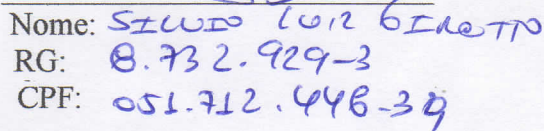 Nome: SILVIO LUIZ GIROTTO
RG: 8.732.929-3
CPF: 051.712.448-39